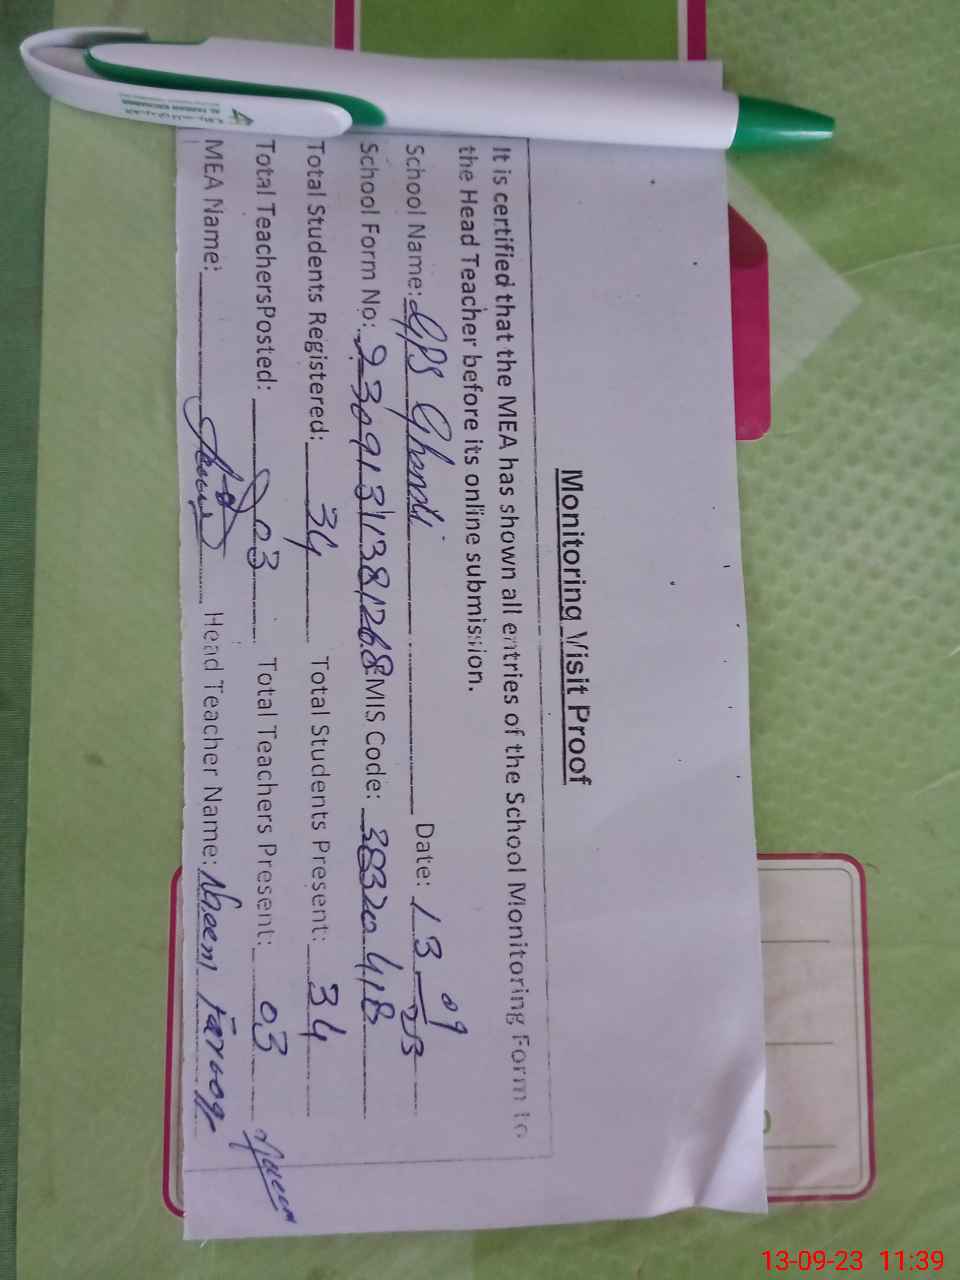 Monitoring Visit Proof
It is certified that the MEA has shown all entries of the School Monitoring Form to
the Head Teacher before its online submission.
School Name: GPS Ghundi Date: 13 09 23
School Form No: 23091311381268 EMIS Code: 38320418
Total Students Registered: 34 Total Students Present: 34
Total TeachersPosted: 03 Total Teachers Present: 03
MEA Name: Head Teacher Name: Naeem Farooq
13-09-23 11:39